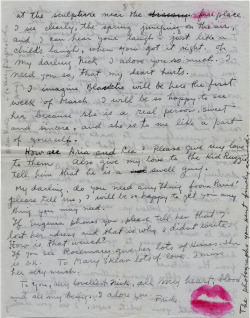 at the sculpture near the fire place
I see clearly, the spring jumping on the
and I then hear your laugh just like a
child's laugh, when you got it right. Oh
my darling Nick I adore you so much. I
need you so, that my heart hurts.
I imagine will be here the first
week of March. I will be so happy to see
her because she is a real person, sweet
and sincere, and she is to me like a part
of yourself.
How are and please give my love
to them. Also give my love to the kid
Tell him that he is a swell guy.
My darling, do you need anything from Paris?
please tell me, I will be so happy to get you any
thing you may need.
If Eugenia phones you, please tell her that I
lost her address and that is why I didn't write.
How is that wench?
If you see Rosemary give her lots of kisses. She
is O.K. To Mary Sklar lots of love. I miss
her very much.
To you, my loveliest Nick, all my heart,
and all my being. I adore you.
Frida
The photographs you